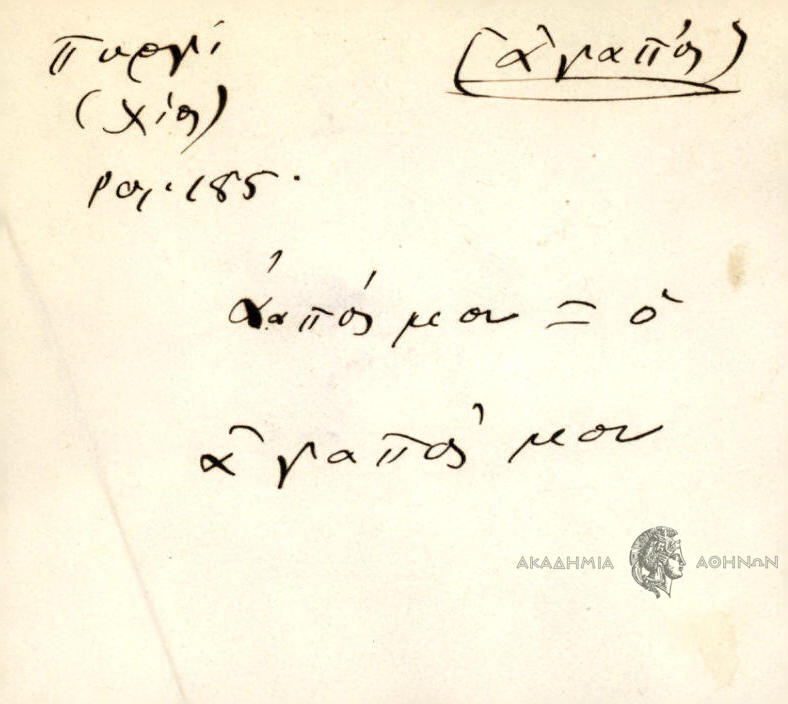 Πυργί
(ἀγαπός)
(Χίος)
185.
ἀαπός μου = ὁ
ἀγαπός μου
ΑΚΑΔΗΜΙΑ ΑΘΗΝΩΝ